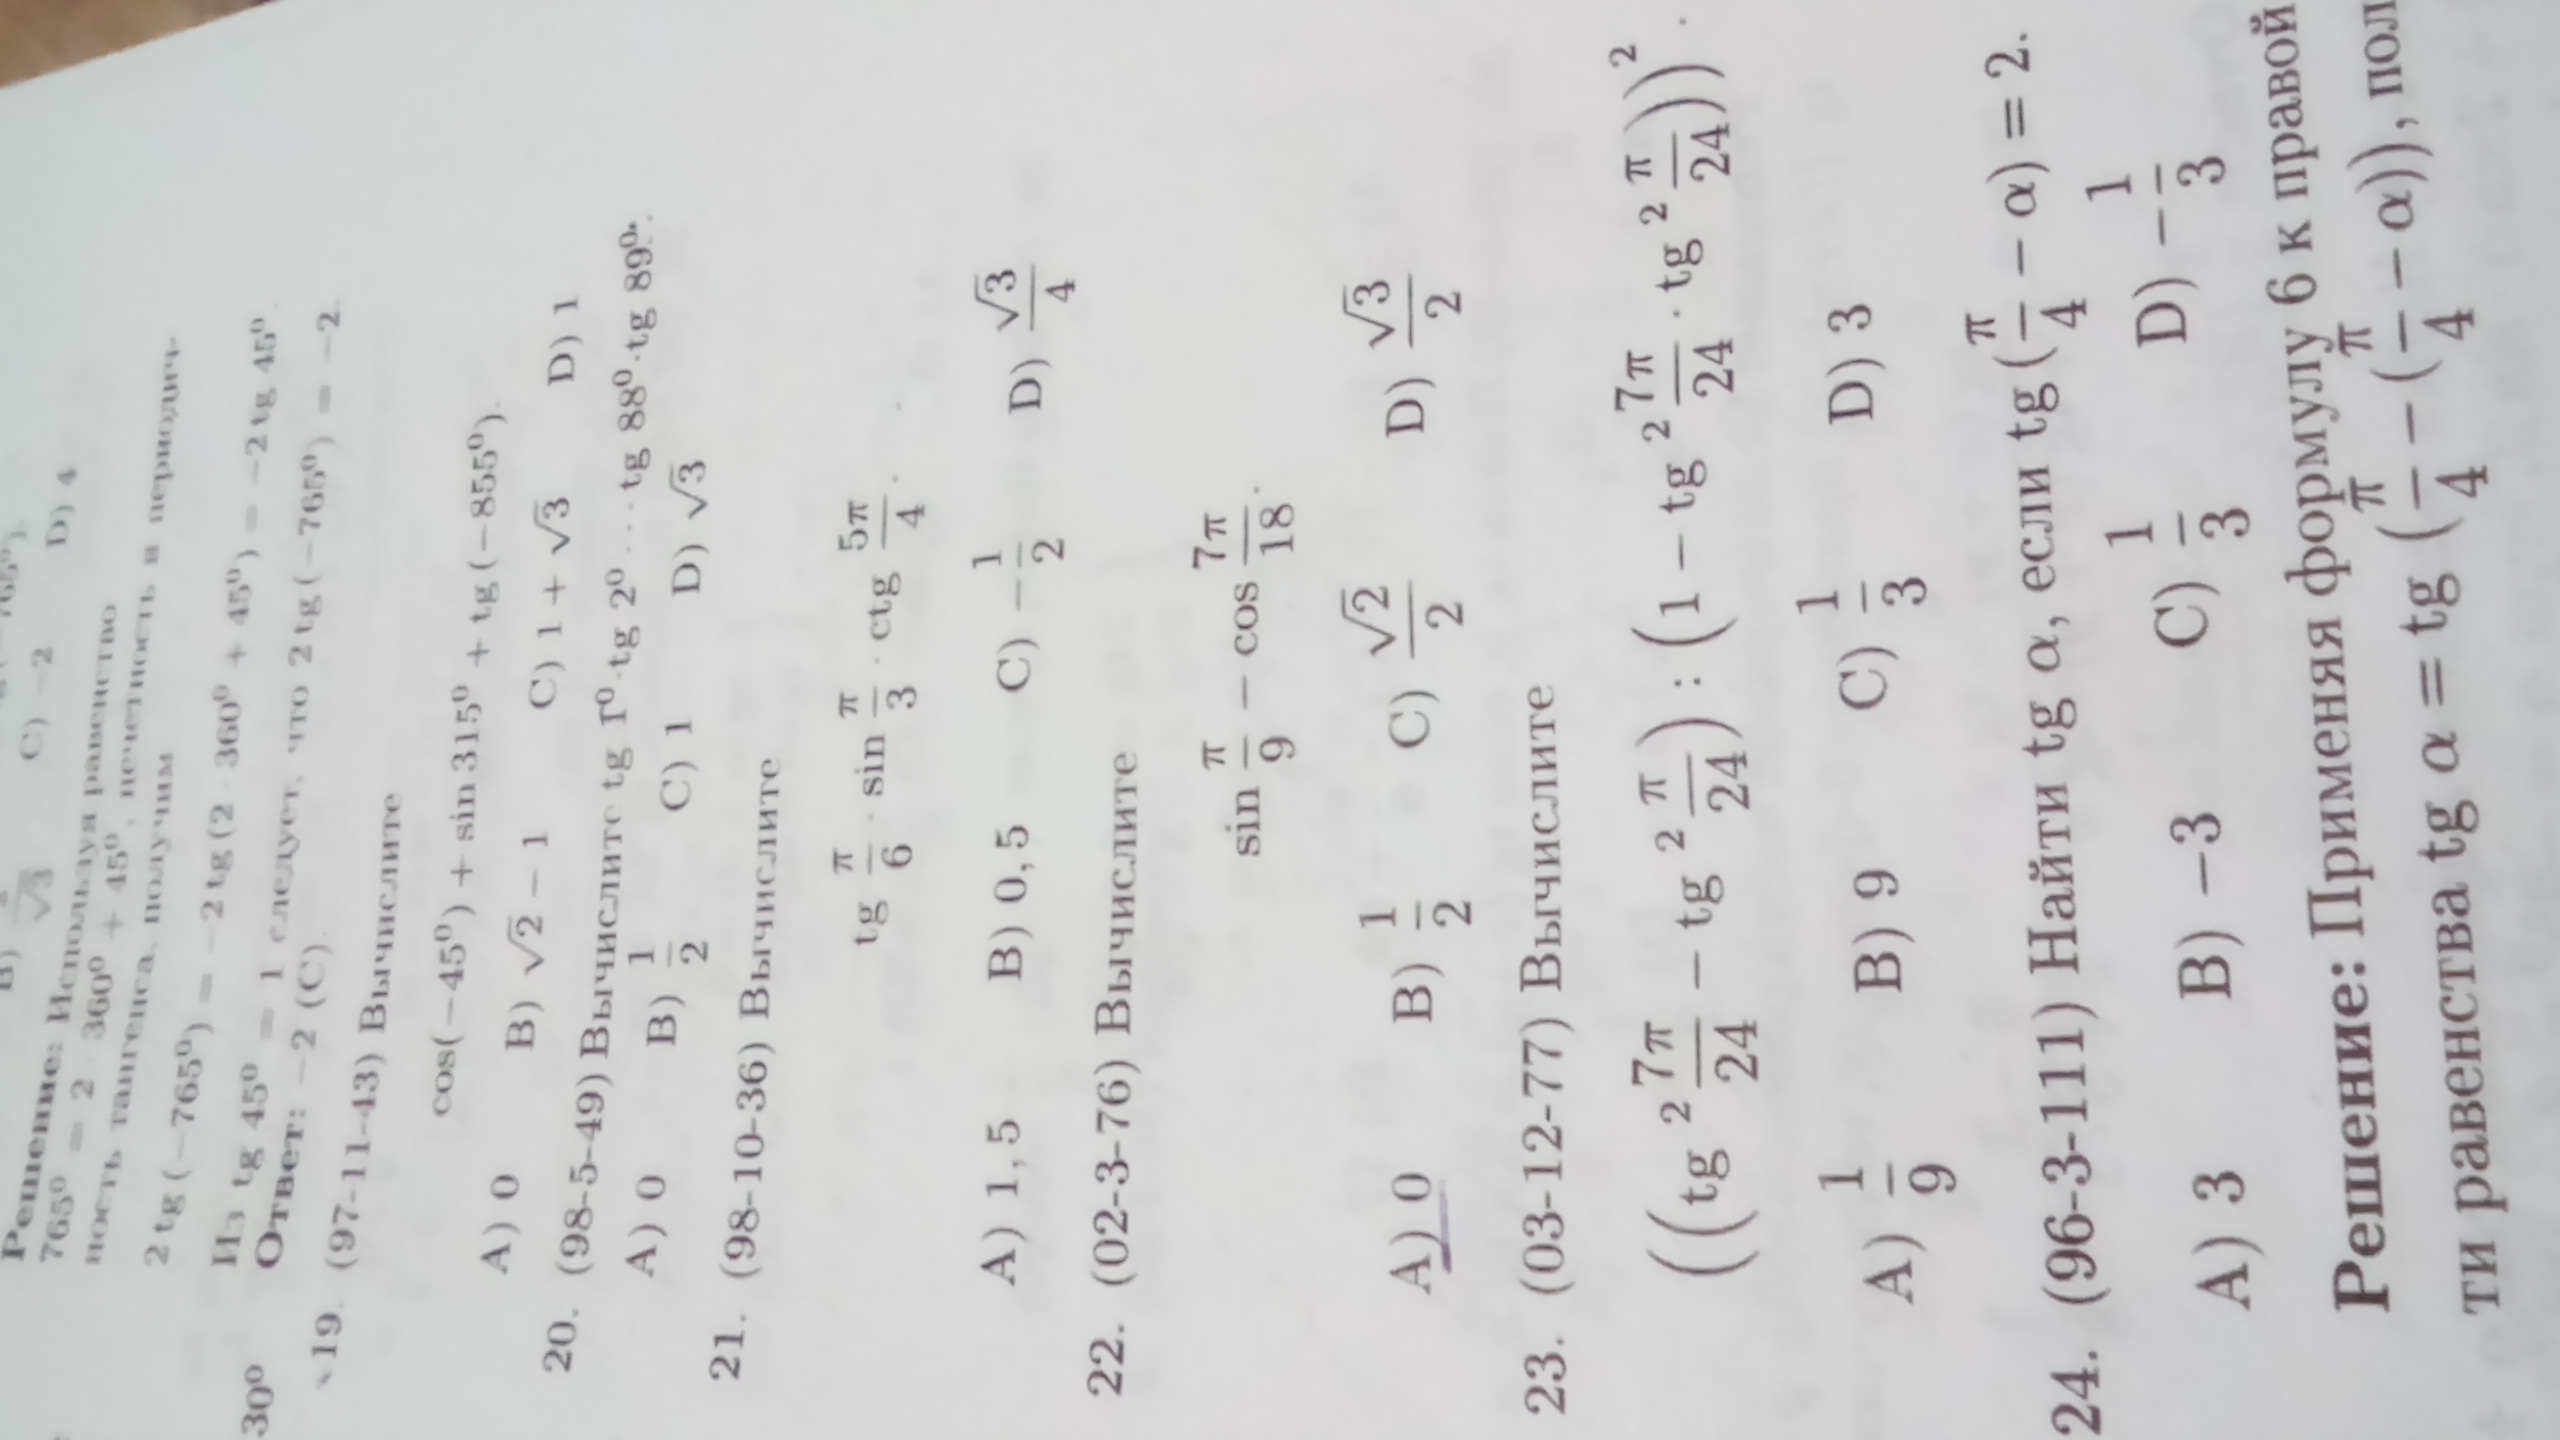 C) −2 D) 4
Решение: Используя равенство
765⁰ = 2 · 360⁰ + 45⁰, нечетность и периодич-
ность тангенса, получим
2 tg (−765⁰) = −2 tg (2 · 360⁰ + 45⁰) = −2 tg 45⁰.
Из tg 45⁰ = 1 следует, что 2 tg (−765⁰) = −2.
Ответ: −2 (C).
30⁰
19. (97-11-43) Вычислите
cos(−45⁰) + sin 315⁰ + tg (−855⁰).
A) 0 B) √2 − 1 C) 1 + √3 D) 1
20. (98-5-49) Вычислите tg 1⁰·tg 2⁰ … tg 88⁰·tg 89⁰.
A) 0 B) 1/2 C) 1 D) √3
21. (98-10-36) Вычислите
tg π/6 · sin π/3 · ctg 5π/4.
A) 1, 5 B) 0, 5 C) −1/2 D) √3/4
22. (02-3-76) Вычислите
sin π/9 − cos 7π/18.
A) 0 B) 1/2 C) √2/2 D) √3/2
23. (03-12-77) Вычислите
((tg² 7π/24 − tg² π/24) : (1 − tg² 7π/24 · tg² π/24))².
A) 1/9 B) 9 C) 1/3 D) 3
24. (96-3-111) Найти tg α, если tg (π/4 − α) = 2.
A) 3 B) −3 C) 1/3 D) −1/3
Решение: Применяя формулу 6 к правой
ти равенства tg α = tg (π/4 − (π/4 − α)), пол